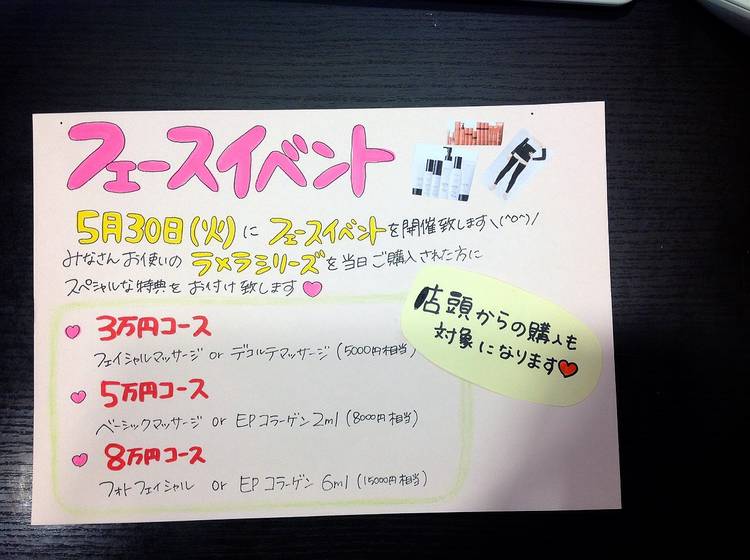 フェースイベント
5月30日(火)に フェースイベントを開催致します\(^o^)/
みなさんお使いの ラメラシリーズを当日ご購入された方に
スペシャルな特典を お付け致します♥
店頭からの購入も
対象になります♥
♥ 3万円コース
フェイシャルマッサージ or デコルテマッサージ (5000円相当)
♥ 5万円コース
ベーシックマッサージ or EPコラーゲン2ml (8000円相当)
♥ 8万円コース
フォトフェイシャル or EPコラーゲン 6ml (15000円相当)